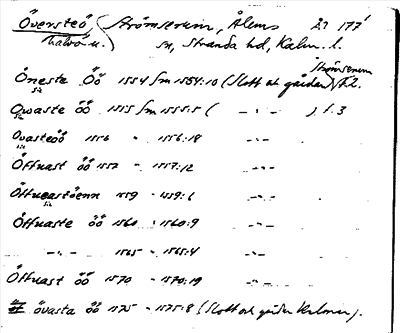 Översteö Strömserum, Ålems Ål 177
sn, Stranda hd, Kalm. l.
Strömserum
Öneste Öö 1554 Sm 1554:10 (Slott och gården) f.2.
sic
Owaste öö 1555 Sm 1555:5 ( -"- ) f. 3
sic
Ovasteöö 1556 - 1556:18 -"-
sic
Öffuast öö 1557 - 1557:12 -"-
Öffueastöenn 1559 - 1559:6 -"-
sic
Öffuaste öö 1560 - 1560:9 -"-
-"- 1565 - 1565:4 -"-
Öffuast öö 1570 - 1570:19 -"-
övasta öö 1575 - 1575:8 (Slott och gården Kalmar).